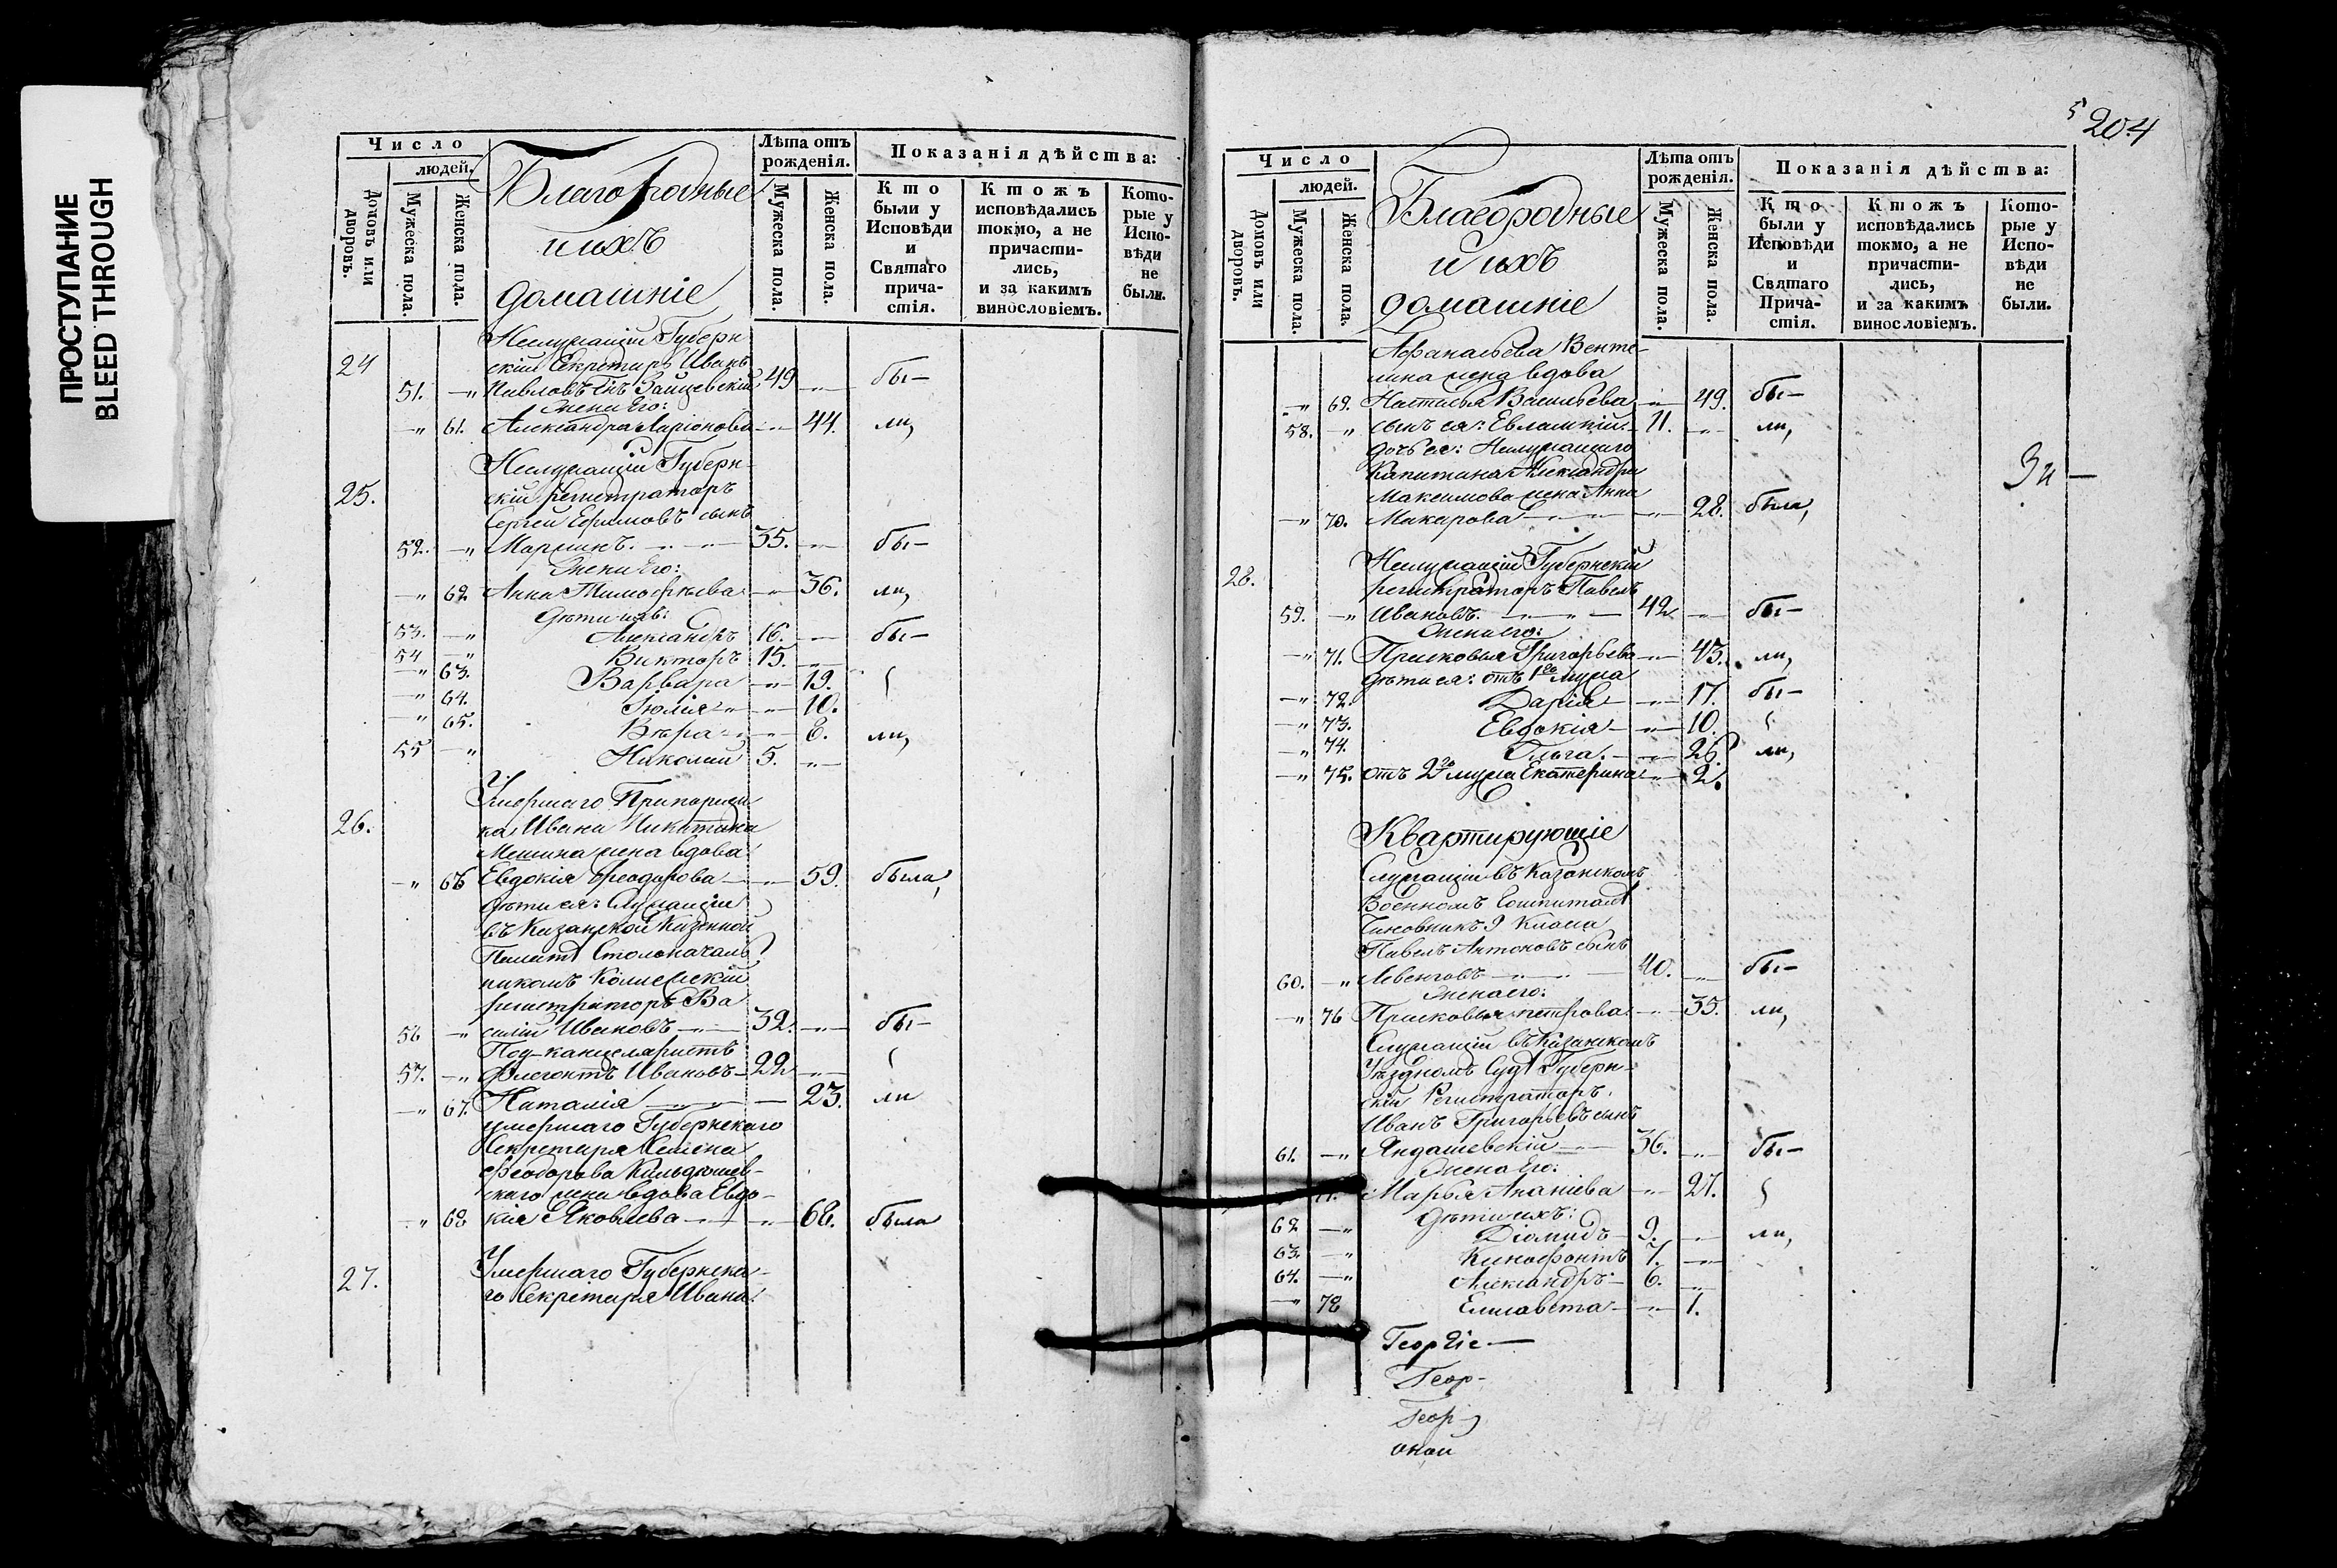 ПРОСТУПАНИЕ
BLEED THROUGH
Число
людей.
Домовъ или дворовъ.
Мужеска пола.
Женска пола.
Благородные
и ихъ
домашніе
Лѣта отъ рожденія.
Мужеска пола.
Женска пола.
Показанія дѣйства:
Кто были у Исповѣди и Святаго причастія.
Ктожъ исповѣдались токмо, а не причастились, и за какимъ винословіемъ.
Которые у Исповѣди не были.
Неслужащій Губерн
24 скій Секретарь Иванъ
51. —„ Павловъ Зайцевскій 49 —„— бы—
Жена Его:
—„ 61. Александра Ларіонова —„— 44. ли,
Неслужащій Губерн-
25. скій Регистраторъ
Сергей Ефимовъ сынъ
52. —„ 35. —„— бы—
Жена Его:
—„ 62 Анна Тимофѣева —„— 36. ли,
Дѣти ихъ:
53. —„ Александръ 16. —„— бы—
54 —„ Викторъ 15. —„—
—„ 63. Варвара —„— 19.
—„ 64. Іюлія —„— 10.
—„ 65. Вѣра —„— 6. ли,
55 —„ Николай 5. —„—
Умершаго Прапорщи
26. ка Ивана Никитина
жена вдова
—„ 66 Евдокія Ѳеодорова —„— 59. была,
дѣти ея: Служащіи
въ Казанской Казенной
Палатѣ Столоначаль
никомъ Коллежскій
регистраторъ Ва
56 —„ силій Ивановъ —„— 32. —„— бы—
Под-канцеляристъ
57. —„ Флегонтъ Ивановъ 22 —„—
—„ 67. Наталія —„— 23. ли
умершаго Губернскаго
Секретаря Семена
Феодорова Кильдюшев-
скаго жена вдова Евдо-
—„ 68 кія Яковлева —„— 68. была
Умершаго Губернска-
27. го Секретаря Ивана
5 204
Число
людей.
Домовъ или дворовъ.
Мужеска пола.
Женска пола.
Благородные
и ихъ
домашніе
Лѣта отъ рожденія.
Мужеска пола.
Женска пола.
Показанія дѣйства:
Кто были у Исповѣди и Святаго Причастія.
Ктожъ исповѣдались токмо, а не причастились, и за какимъ винословіемъ.
Которые у Исповѣди не были.
Афанасьева Венте-
лина жена вдова
—„ 69. Наталья Васильева —„— 49. бы—
58. —„ сынъ ея: Евлампій 11. —„— ли,
дочь ея: Неслужащаго
Капитана Александра
Максимова жена Анна
—„ 70. Макарова —„— 28. была,
Неслужащій Губернскій
28. регистраторъ Павелъ
59. —„ Ивановъ —„— 42 —„— бы—
Жена его:
—„ 71. Прасковья Григорьева —„— 43. ли,
дѣти ея: отъ 1го мужа
—„ 72. Дарія —„— 17. бы—
—„ 73. Евдокія —„— 10.
—„ 74. Ольга —„— ли,
—„ 75. отъ 2го мужа Екатерина —„— 2.
Квартирующіе
Служащіи въ Казанскомъ
Военномъ Гошпиталѣ
Чиновникъ 9 Класса
Павелъ Антоновъ сынъ
60. —„ 40. —„— бы—
Жена его:
—„ 76 Прасковья петрова —„— 35. ли,
Служащіи въ Казанскомъ
Уѣздномъ Судѣ Губерн-
скій Регистраторъ
Иванъ Григорьевъ сынъ
61. —„ Яндашевскій —„— 36. —„— бы—
Жена Его:
Марья Ананіева —„— 27.
дѣти ихъ:
62 —„ Діомидъ 9. —„— ли,
63. —„ Ксенофонтъ 7. —„—
64. —„ Александръ 6. —„—
—„ 78 Елисавета —„— 1.
Георгіе—
Геор-
Геор-